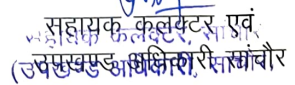 सहायक कलक्टर एवं
उपखण्ड अधिकारी सांचौर